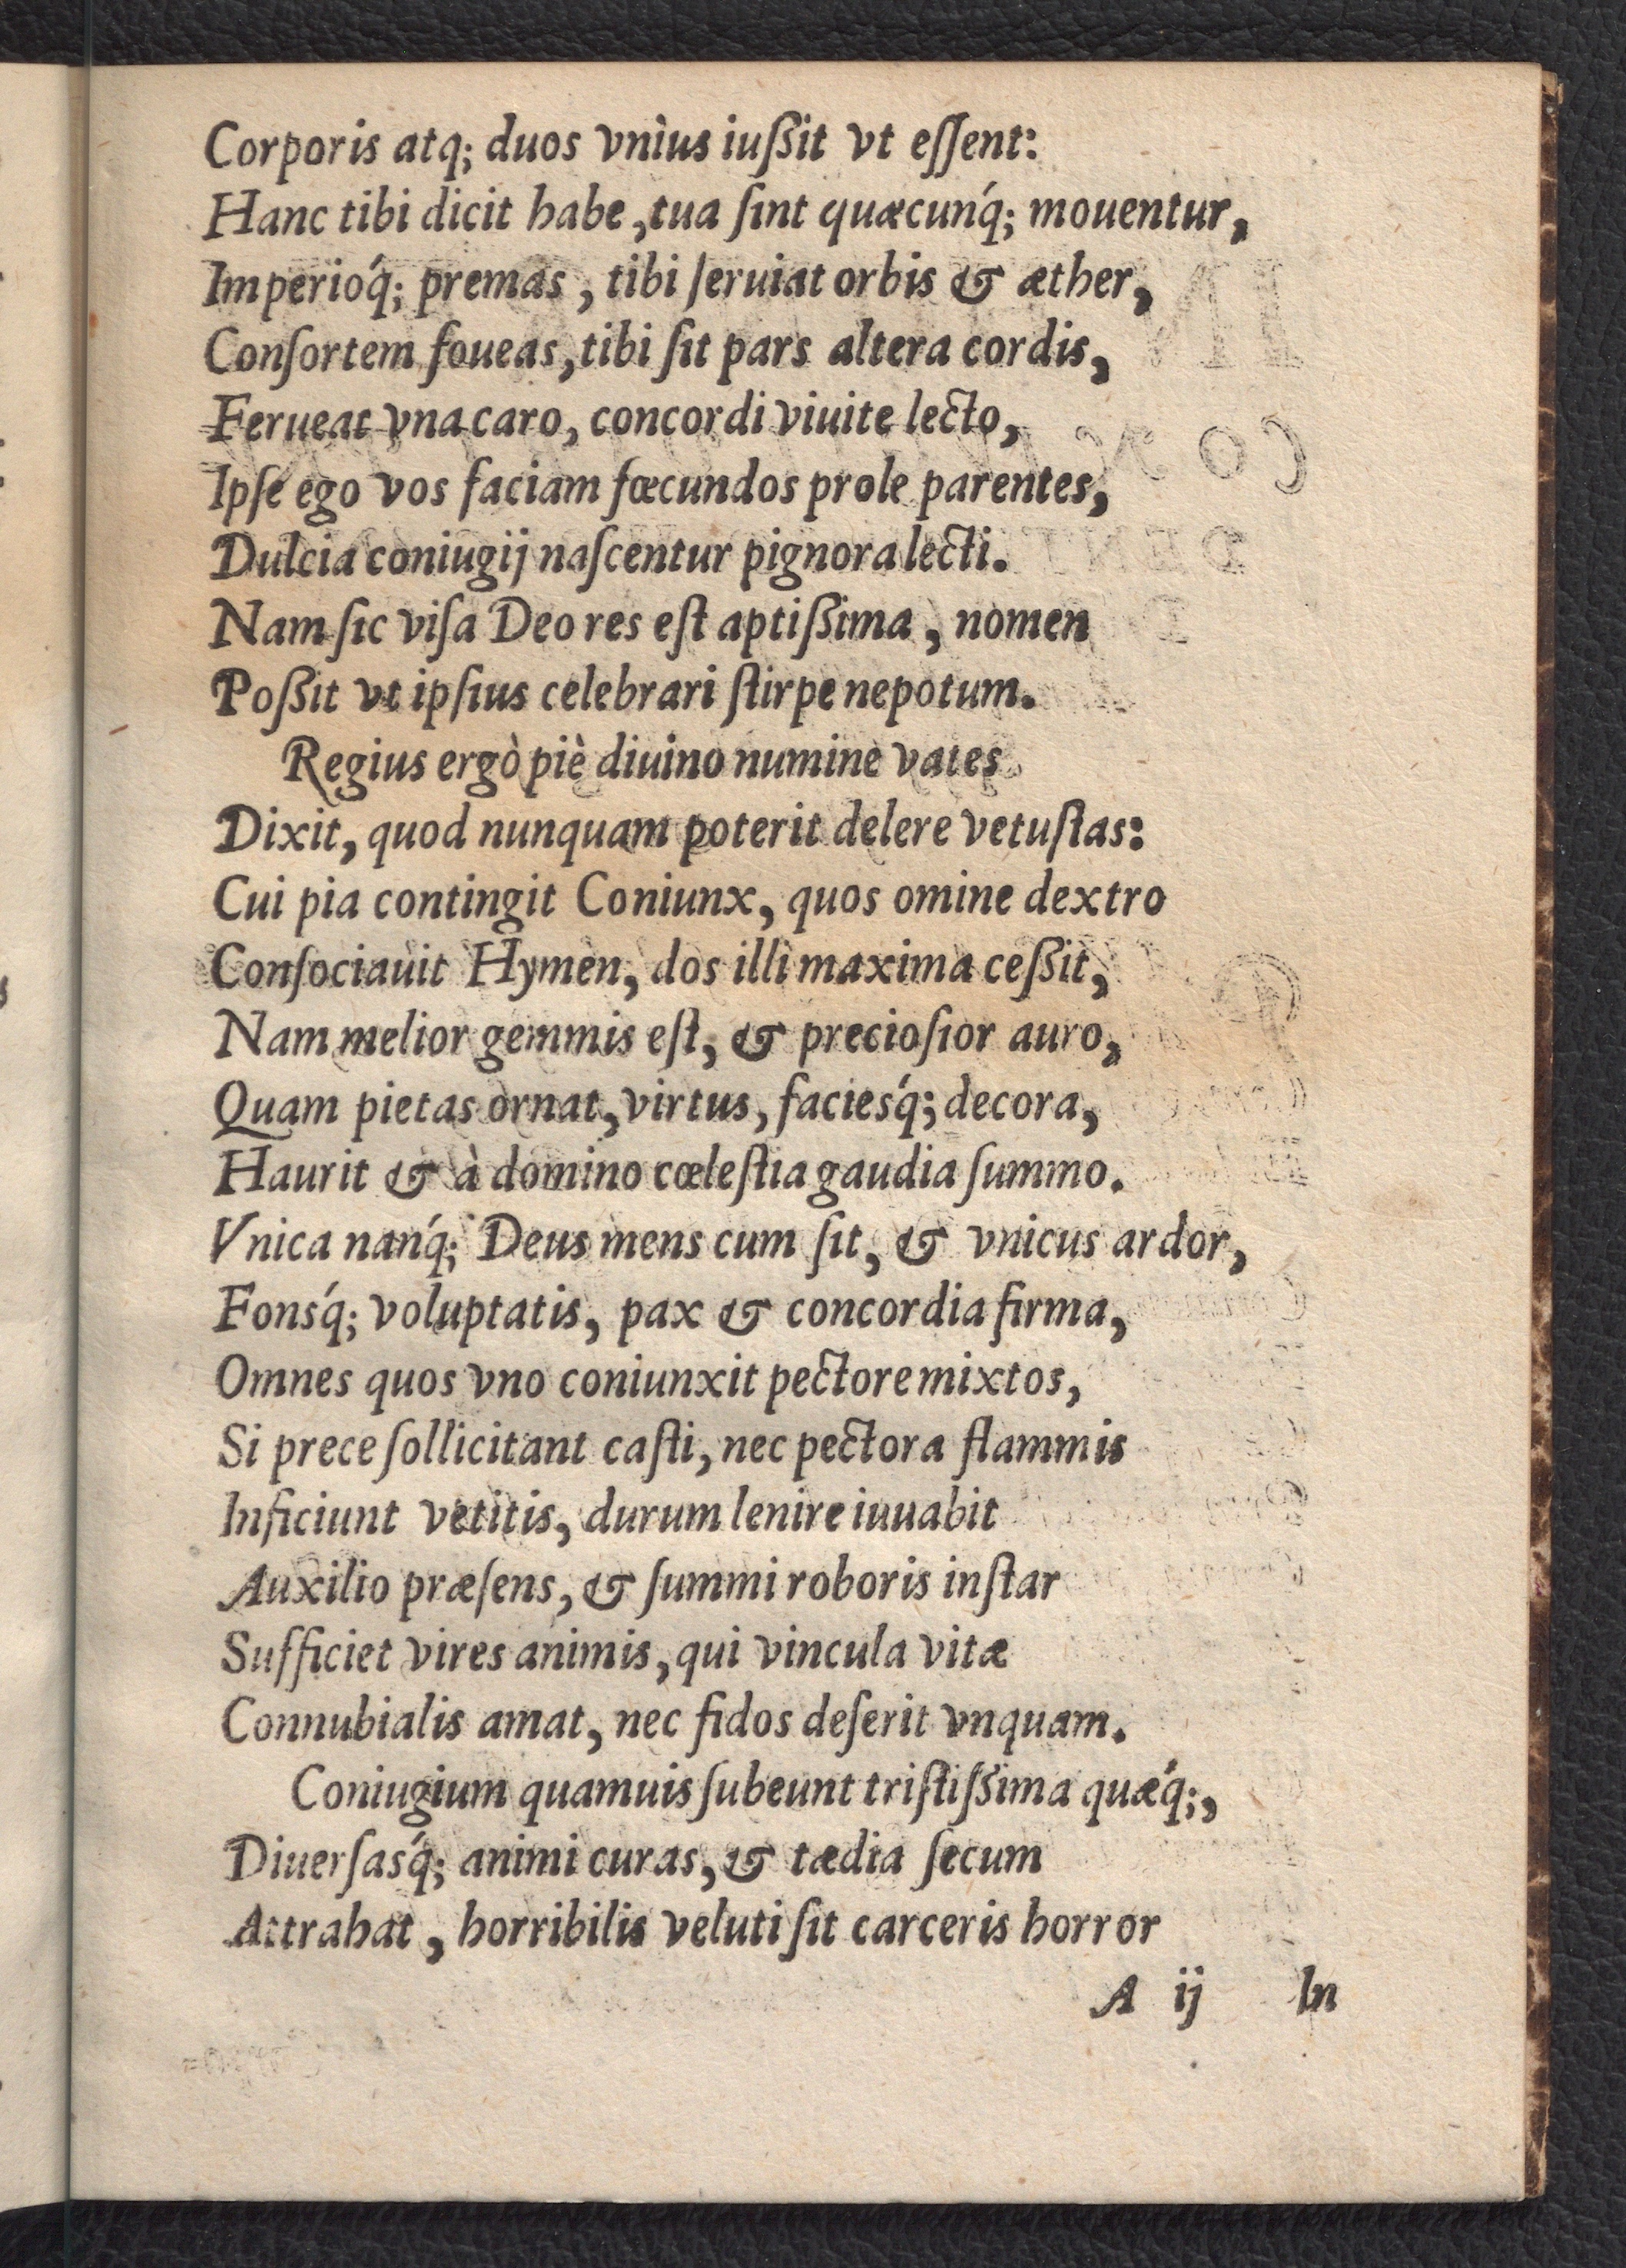 Corporis atq; duos vnius iußit vt eſſent:
Hanc tibi dicit habe, tua ſint quæcunq́; mouentur,
Imperioq́; premas, tibi ſeruiat orbis & æther,
Conſortem foueas, tibi ſit pars altera cordis,
Ferueat vna caro, concordi viuite lecto,
Ipſe ego vos faciam fœcundos prole parentes,
Dulcia coniugij naſcentur pignora lecti.
Nam ſic viſa Deo res eſt aptißima, nomen
Poßit vt ipſius celebrari ſtirpe nepotum.
Regius ergò piè diuino numine vates
Dixit, quod nunquam poterit delere vetuſtas:
Cui pia contingit Coniunx, quos omine dextro
Conſociauit Hymen, dos illi maxima ceßit,
Nam melior gemmis eſt, & precioſior auro,
Quam pietas ornat, virtus, faciesq́; decora,
Haurit & à domino cœleſtia gaudia ſummo.
Vnica nanq́; Deus mens cum ſit, & vnicus ardor,
Fonsq́; voluptatis, pax & concordia firma,
Omnes quos vno coniunxit pectore mixtos,
Si prece ſollicitant caſti, nec pectora flammis
Inficiunt vetitis, durum lenire iuuabit
Auxilio præſens, & ſummi roboris inſtar
Sufficiet vires animis, qui vincula vitæ
Connubialis amat, nec fidos deſerit vnquam.
Coniugium quamuis ſubeunt triſtißima quæq́;,
Diuerſasq́; animi curas, & tædia ſecum
Attrahat, horribilis veluti ſit carceris horror
A ij In